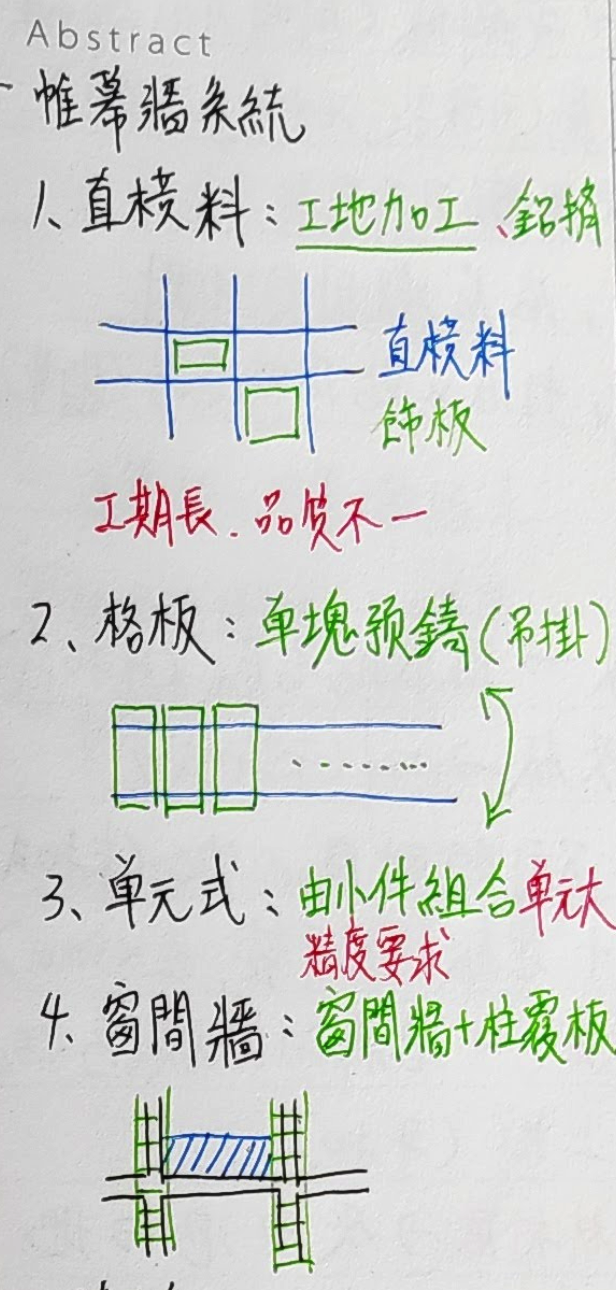 Abstract
帷幕牆系統
1、直橫料：工地加工、鋁擠
直橫料
飾板
工期長.品質不一
2、格板：单塊預鑄(吊掛)
3、单元式：由小件組合单元大
精度要求
4、窗間牆：窗間牆+柱覆板